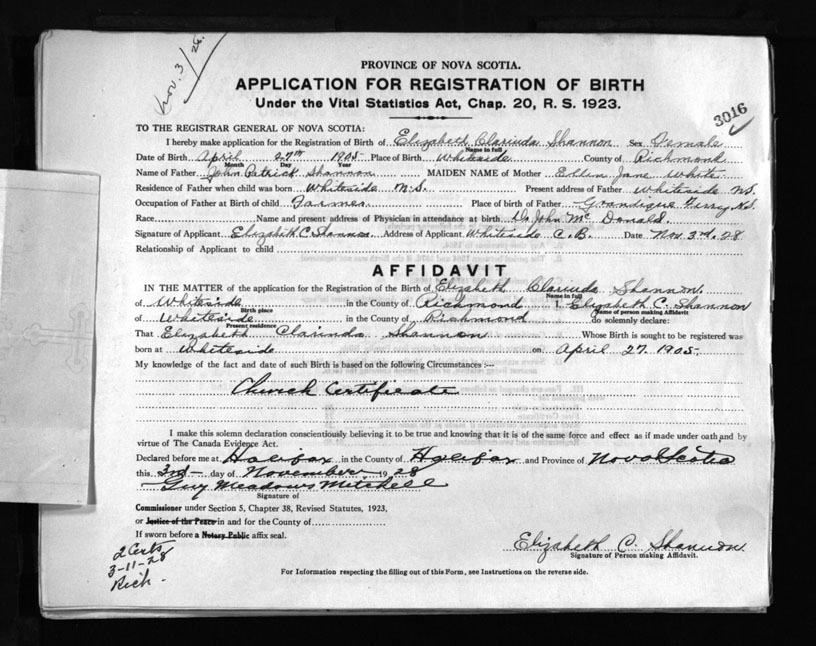 Nov. 3/28.
PROVINCE OF NOVA SCOTIA.
APPLICATION FOR REGISTRATION OF BIRTH
Under the Vital Statistics Act, Chap. 20, R. S. 1923.
3016
TO THE REGISTRAR GENERAL OF NOVA SCOTIA:
I hereby make application for the Registration of Birth of Elizabeth Clarinda Shannon Sex Female
Name in full
Date of Birth April 27th 1905 Place of Birth Whiteside County of Richmond
Month Day Year
Name of Father John Patrick Shannon MAIDEN NAME of Mother Ellen Jane White
Residence of Father when child was born Whiteside N.S. Present address of Father Whiteside NS.
Occupation of Father at Birth of child Farmer Place of birth of Father Grandique Ferry N.S.
Race Name and present address of Physician in attendance at birth Dr John Mc Donald.
Signature of Applicant Elizabeth C. Shannon Address of Applicant Whiteside C.B. Date Nov 3rd. 28
Relationship of Applicant to child
AFFIDAVIT
IN THE MATTER of the application for the Registration of the Birth of Elizabeth Clarinda Shannon.
Name in full
of Whiteside in the County of Richmond I, Elizabeth C. Shannon
Birth place Name of person making Affidavit
of Whiteside in the County of Richmond do solemnly declare:
Present residence
That Elizabeth Clarinda Shannon Whose Birth is sought to be registered was
born at Whiteside on April 27. 1905.
My knowledge of the fact and date of such Birth is based on the following Circumstances :—
Church Certificate
I make this solemn declaration conscientiously believing it to be true and knowing that it is of the same force and effect as if made under oath and by
virtue of The Canada Evidence Act.
Declared before me at Halifax in the County of Halifax and Province of Nova Scotia
this 3rd day of November 1928
Guy Meadows Mitchell
Signature of
Commissioner under Section 5, Chapter 38, Revised Statutes, 1923,
or Justice of the Peace in and for the County of
If sworn before a Notary Public affix seal.
Elizabeth C. Shannon
Signature of Person making Affidavit.
2 Certs
3-11-28
Rich.
For Information respecting the filling out of this Form, see Instructions on the reverse side.